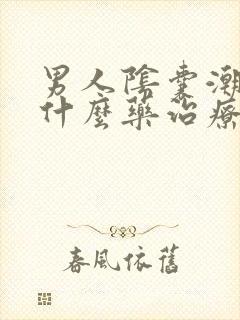 男人陰囊潮
什麼藥治療
春風依舊